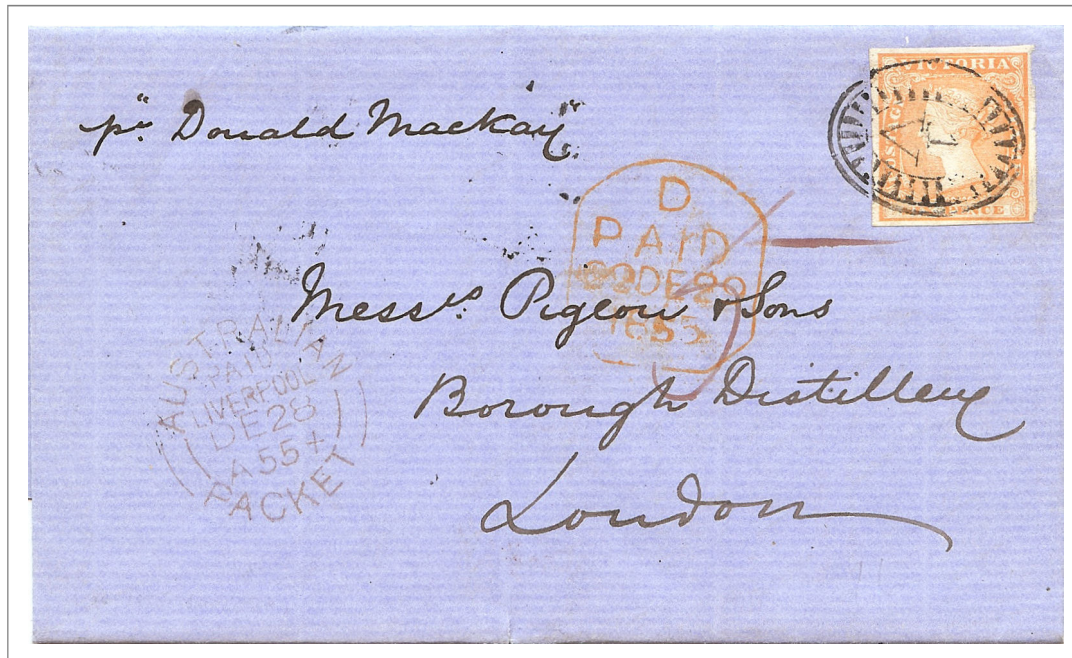 VICTORIA
POSTAGE
PENCE
V
pr Donald Mackay.
D
PAID
DE 29
1855
Messrs. Pigeon & Sons
Borough Distillery
London
AUSTRALIAN
PAID
LIVERPOOL
DE 28
A 55 +
PACKET